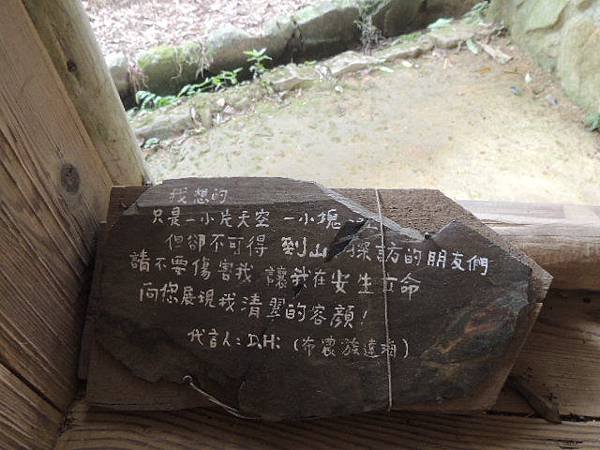 我想的
只是一小片天空 一小塊
但卻不可得 到山 探訪的朋友們
請不要傷害我 讓我在 安生立命
向您展現我清翠的容顏!
代言人: D.H: (布農族遠海)